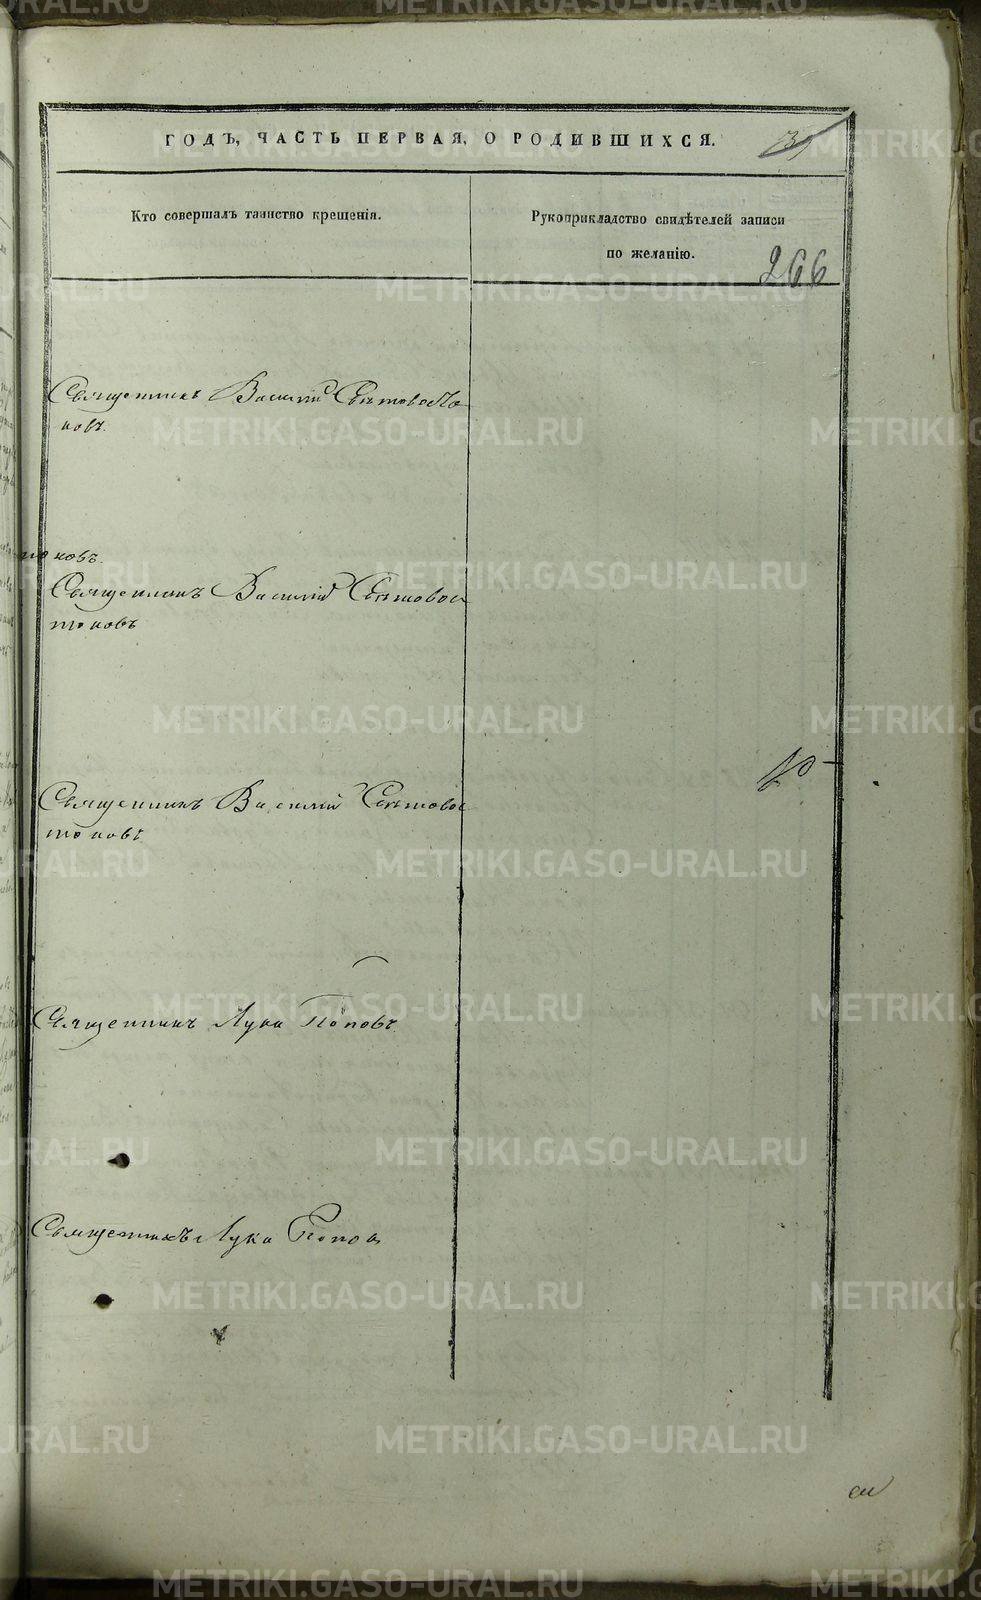 ГОДЪ, ЧАСТЬ ПЕРВАЯ, О РОДИВШИХСЯ.
Кто совершалъ таинство крещенія.
Рукоприкладство свидѣтелей записи
по желанію.
266
Священникъ Василій
Священникъ Василій
Священникъ Василій
Священникъ Лука Поповъ
Священникъ Лука Попов
METRIKI.GASO-URAL.RU